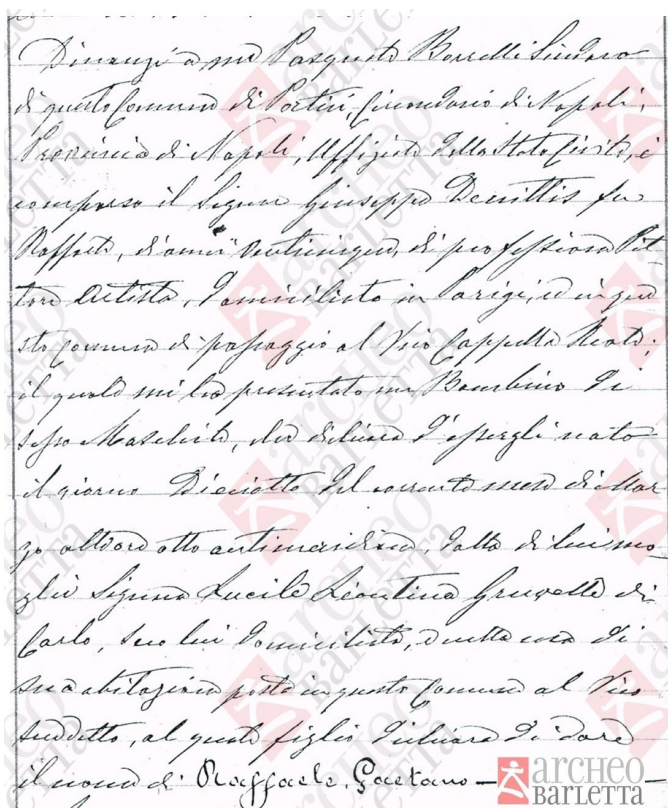 Dinanzi a me Pasquale Borrelli Sindaco
di questo Comune di Portici, Circondario di Napoli,
Provincia di Napoli, Uffiziale dello Stato Civile, è
comparso il Signor Giuseppe Denittis fu
Raffaele, di anni Venticinque, di professione Pit-
tore Artista, domiciliato in Parigi, ed in que
sto Comune di passaggio al Vico Cappella Reale;
il quale mi ha presentato un Bambino di
sesso Maschile, che dichiara d'essergli nato
il giorno Dieciotto del corrente mese di Mar
zo alle ore otto antimeridiane, dalla di lui mo-
glie Signora Lucile Leontina Gruvelle di
Carlo, seco lui domiciliata, e nella casa di
sua abitazione posta in questo Comune al Vico
suddetto, al quale figlio dichiara di dare
il nome di Raffaele, Gaetano —
ARCHEO
BARLETTA